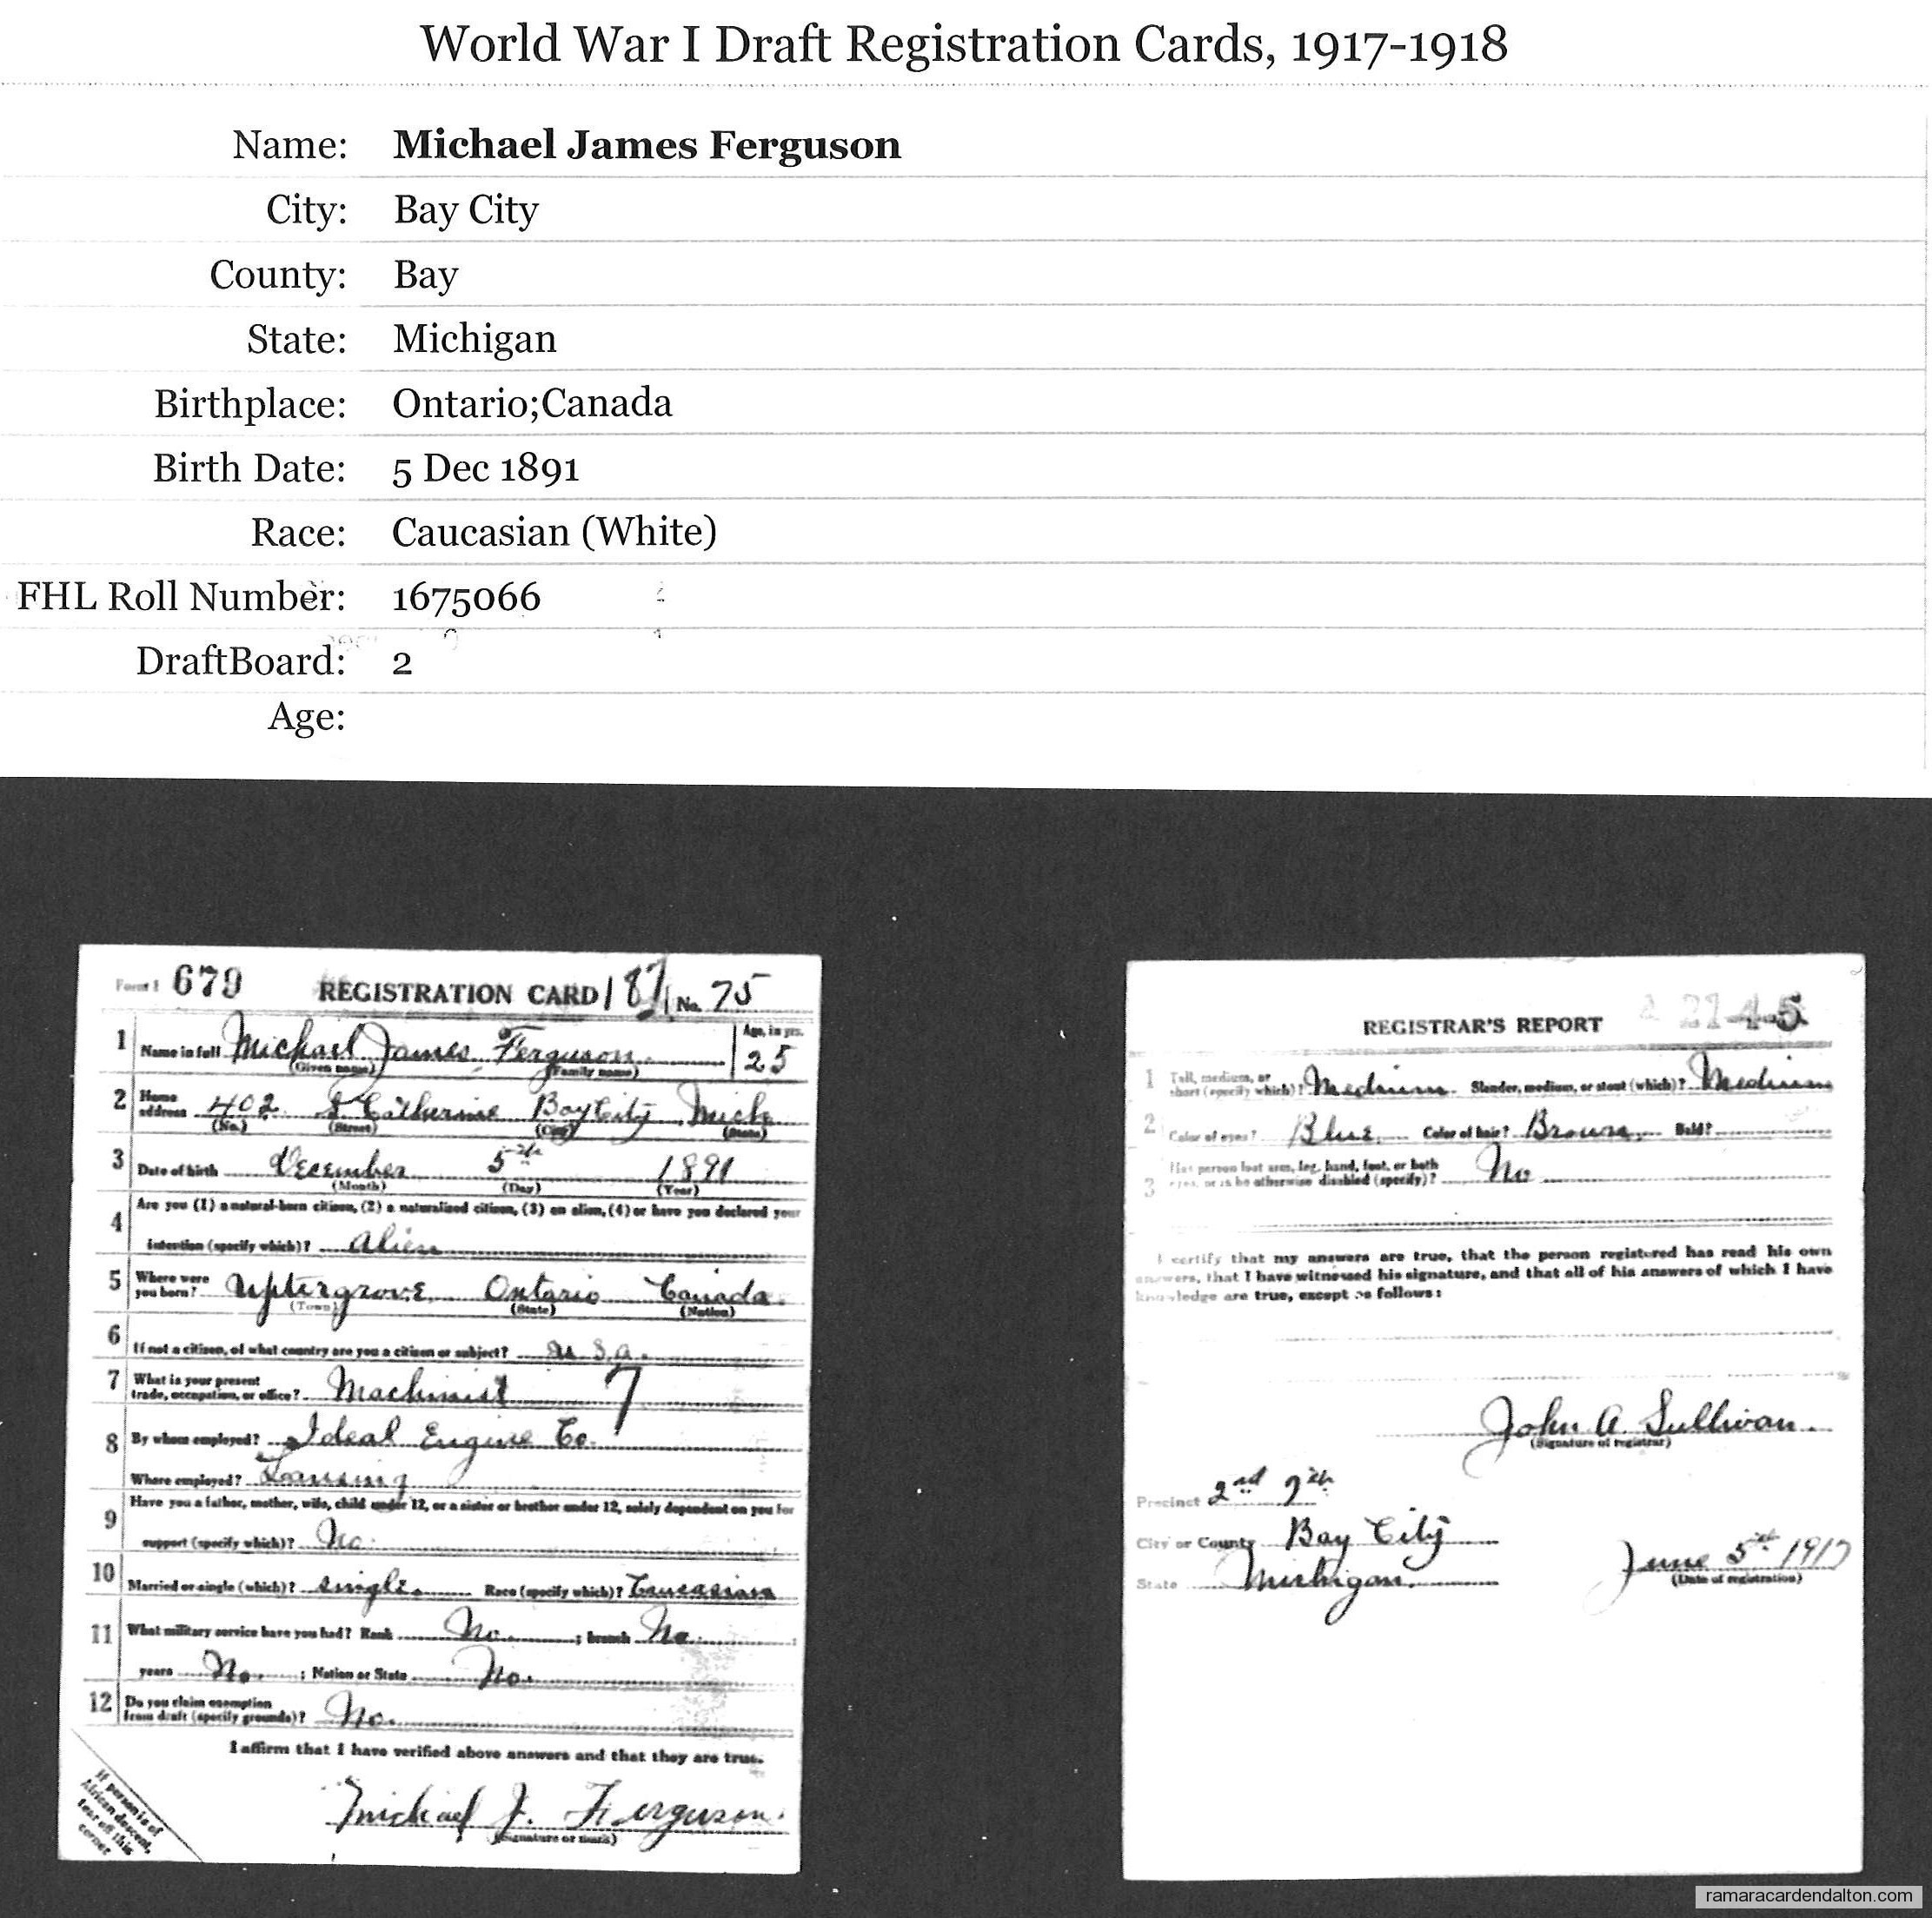 World War I Draft Registration Cards, 1917-1918
Name: Michael James Ferguson
City: Bay City
County: Bay
State: Michigan
Birthplace: Ontario;Canada
Birth Date: 5 Dec 1891
Race: Caucasian (White)
FHL Roll Number: 1675066
DraftBoard: 2
Age:
Form 1 679 REGISTRATION CARD No. 75
1 Name in full Michael James Ferguson Age, in yrs. 25
(Given name) (Family name)
2 Home address 402 S Catherine Bay City Mich
(No.) (Street) (City) (State)
3 Date of birth December 5th 1891
(Month) (Day) (Year)
4 Are you (1) a natural-born citizen, (2) a naturalized citizen, (3) an alien, (4) or have you declared your
intention (specify which)? Alien
5 Where were you born? Uptergrove Ontario Canada
(Town) (State) (Nation)
6 If not a citizen, of what country are you a citizen or subject? U.S.A.
7 What is your present trade, occupation, or office? Machinist 7
8 By whom employed? Ideal Engine Co.
Where employed? Lansing
9 Have you a father, mother, wife, child under 12, or a sister or brother under 12, solely dependent on you for
support (specify which)? No.
10 Married or single (which)? single. Race (specify which)? Caucasian
11 What military service have you had? Rank No. ; branch No. ;
years No. ; Nation or State No.
12 Do you claim exemption from draft (specify grounds)? No.
I affirm that I have verified above answers and that they are true.
Michael J. Ferguson.
(Signature or mark)
If person is of
African descent,
tear off this
corner
REGISTRAR'S REPORT
1 Tall, medium, or short (specify which)? Medium Slender, medium, or stout (which)? Medium
2 Color of eyes? Blue Color of hair? Brown Bald?
3 Has person lost arm, leg, hand, foot, or both eyes, or is he otherwise disabled (specify)? No
I certify that my answers are true, that the person registered has read his own
answers, that I have witnessed his signature, and that all of his answers of which I have
knowledge are true, except as follows:
John A. Sullivan.
(Signature of registrar)
Precinct 2nd
City or County Bay City
State Michigan. June 5th 1917
(Date of registration)
ramaracardendalton.com